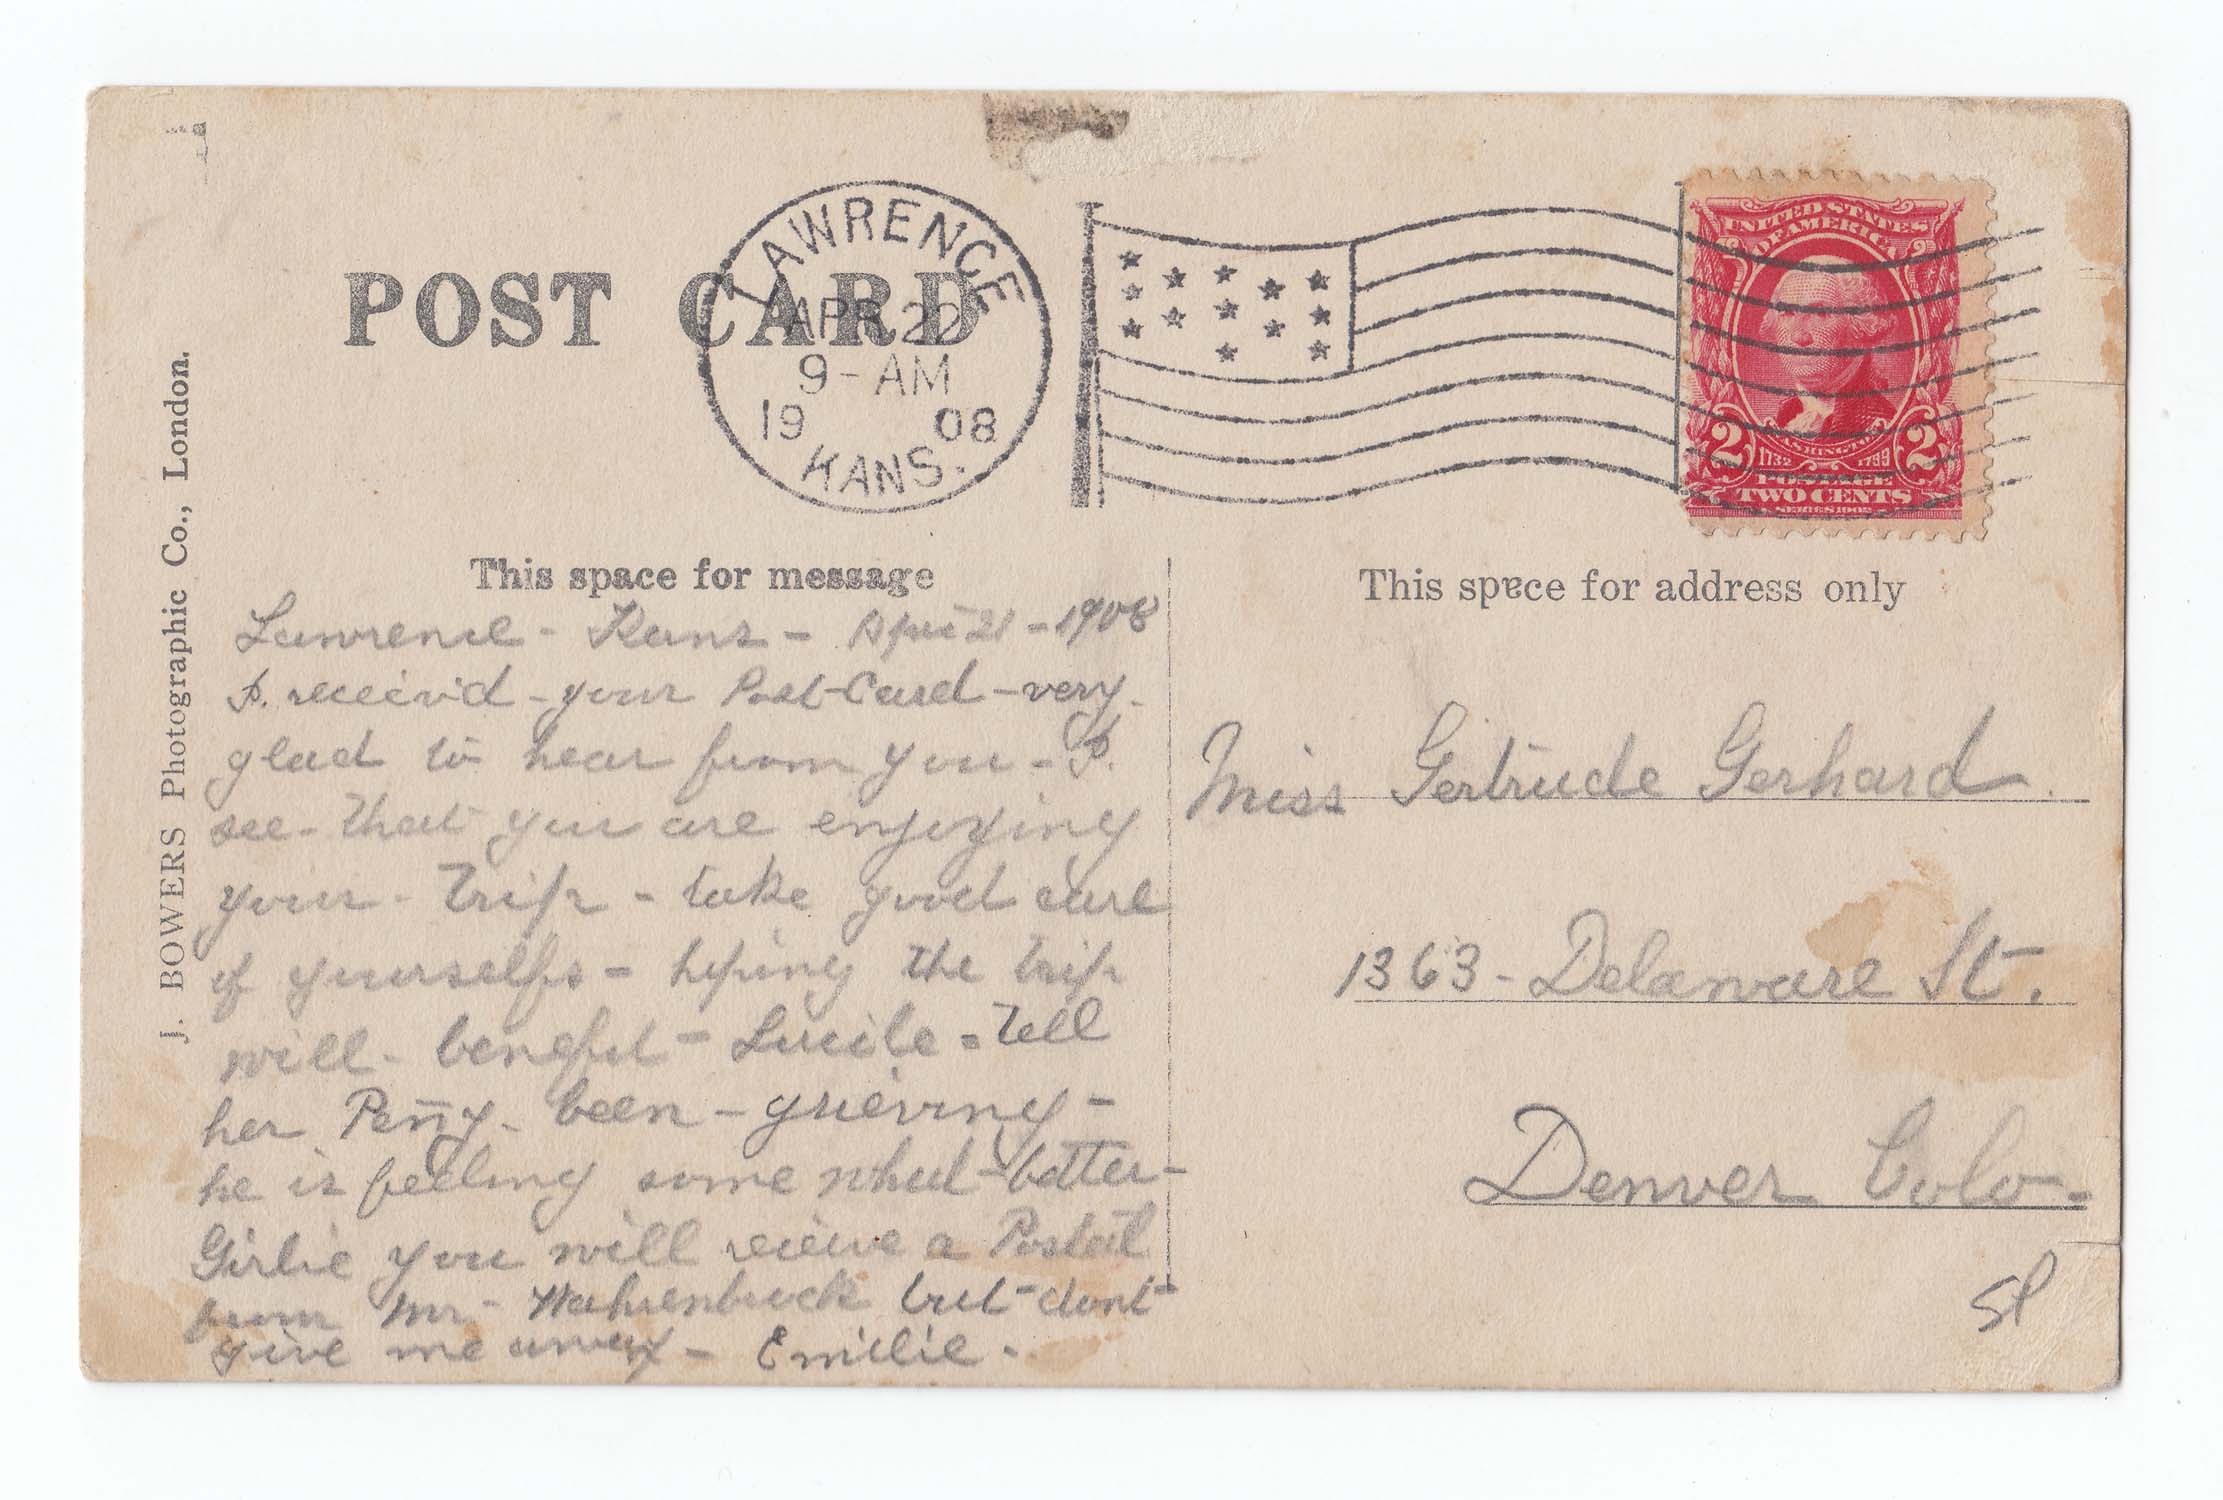 POST CARD
LAWRENCE
APR 22
9-AM
19 08
KANS.
UNITED STATES
OF AMERICA
WASHINGTON
2 1732 1799 2
POSTAGE
TWO CENTS
SERIES 1902
J. BOWERS Photographic Co., London.
This space for message
Lawrence - Kans - April 21 - 1908
I. receiv'd - your Post-Card - very.
glad to hear from you - I.
see - that you are enjoying
your - trip - take good care
of yourselfs - hoping the trip
will - benefit - Lucile - Tell
her Penny - been - grieving -
he is feeling some what - better -
Girlie you will recieve a Postal
from Mr - Wahrenbrock but - dont -
give me away - Emilie -
This space for address only
Miss Gertrude Gerhard
1363 - Delaware St.
Denver Colo -